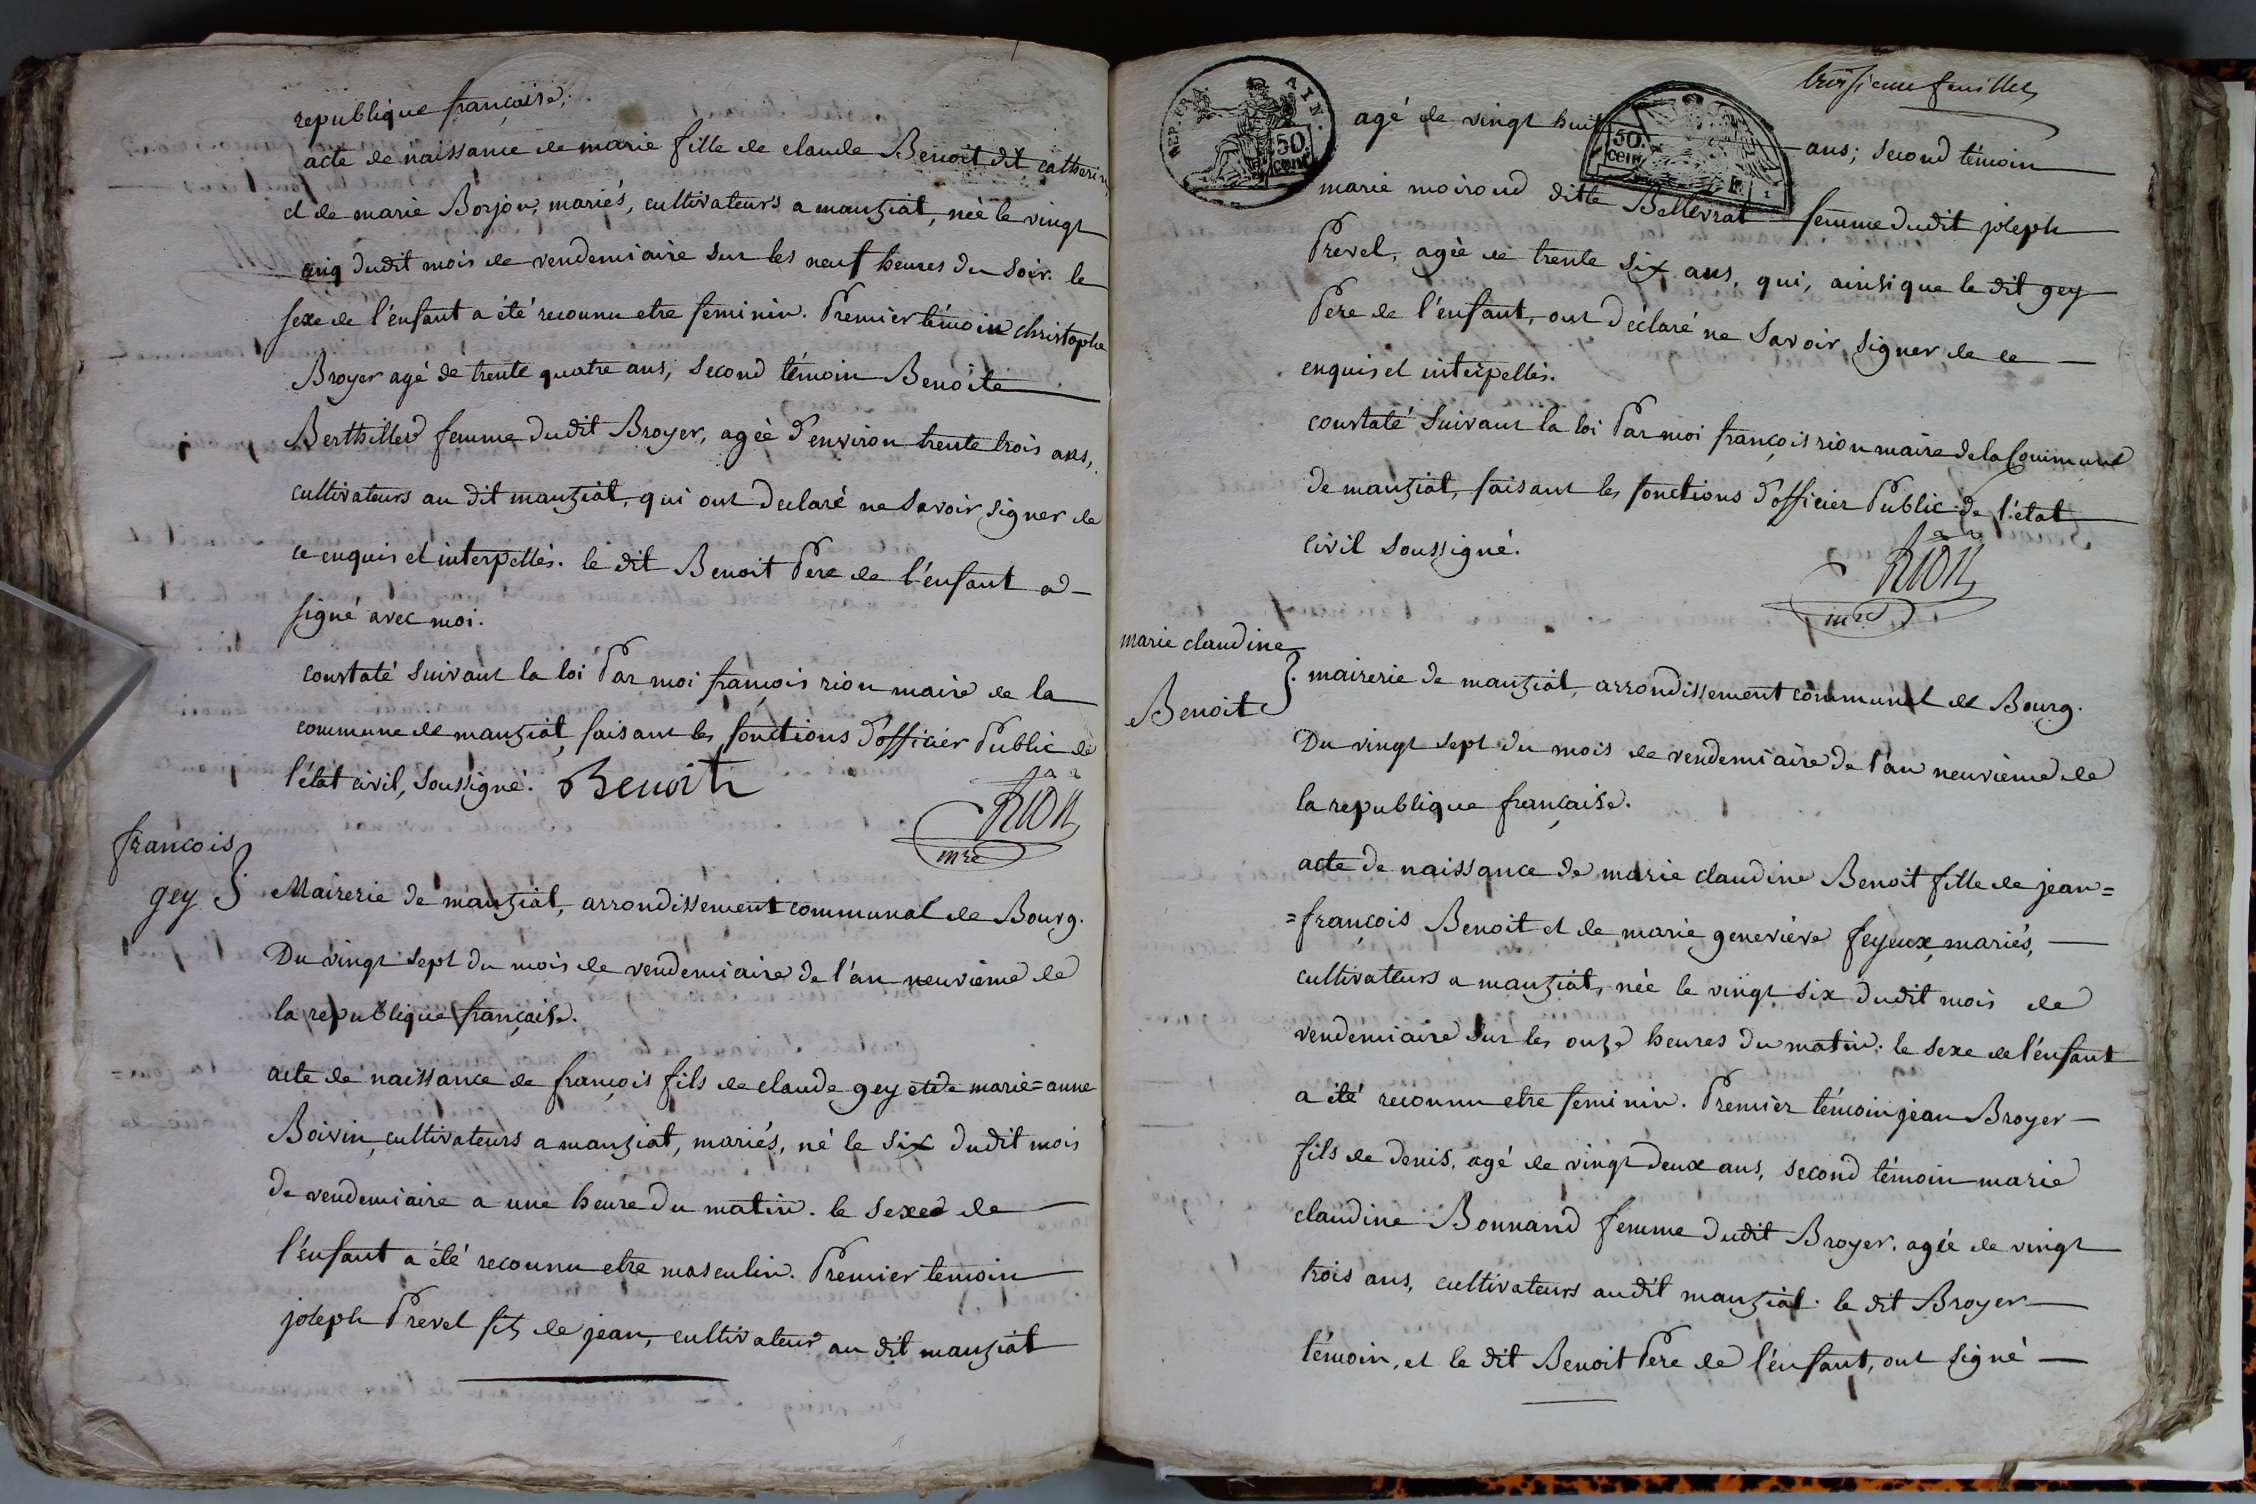 republique française.
acte de naissance de marie fille de claude Benoit dit catherin
et de marie Borjon, mariés, cultivateurs a manziat, née le vingt
cinq dudit mois de vendemiaire sur les neuf heures du soir. le
sexe de l'enfant a été reconnu etre feminin. Premier témoin christophe
Broyer agé de trente quatre ans, second témoin Benoite
Berthilled femme dudit Broyer, agée d'environ trente trois ans,
cultivateurs au dit manziat, qui ont declaré ne savoir signer de
ce enquis et interpellés. le dit Benoit Pere de l'enfant a
signé avec moi.
constaté suivant la loi Par moi françois rion maire de la
commune de manziat, faisant les fonctions d'officier Public de
l'état civil, soussigné. Benoit
Rion
mre
françois
gey
Mairerie de manziat, arrondissement communal de Bourg.
Du vingt sept du mois de vendemiaire de l'an neuvième de
la republique française.
acte de naissance de françois fils de claude gey et de marie=anne
Boivin, cultivateurs a manziat, mariés, né le six dudit mois
de vendemiaire a une heure du matin. le sexe de
l'enfant a été reconnu etre masculin. Premier temoin
joseph Prevel fils de jean, cultivateur au dit manziat
troisieme feuillet
REP. FRA. AIN.
50 cent
50. cen
agé de vingt huit ans; second témoin
marie moiroud ditte Bellevrat femme dudit joseph
Prevel, agée de trente six ans, qui, ainsi que le dit gey
Pere de l'enfant, ont déclaré ne savoir signer de ce
enquis et interpellés.
constaté suivant la loi Par moi françois rion maire de la Commune
de manziat, faisant les fonctions d'officier Public de l'état
civil soussigné.
Rion
mre
marie claudine
Benoit
mairerie de manziat, arrondissement communal de Bourg.
Du vingt sept du mois de vendemiaire de l'an neuvieme de
la republique française.
acte de naissance de marie claudine Benoit fille de jean=
=françois Benoit et de marie geneviève feyeux, mariés,
cultivateurs a manziat, née le vingt six dudit mois de
vendemiaire sur les onze heures du matin. le sexe de l'enfant
a été reconnu etre feminin. Premier témoin jean Broyer
fils de denis, agé de vingt deux ans, second témoin marie
claudine Bonnand femme dudit Broyer, agée de vingt
trois ans, cultivateurs audit manziat. le dit Broyer
témoin, et le dit Benoit Pere de l'enfant, ont signé